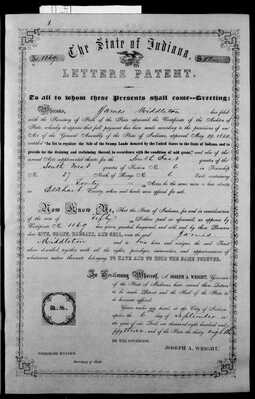 The State of Indiana,
LETTERS PATENT.
To all to whom these Presents shall come—Greeting:
Whereas, James Middleton has filed
with the Secretary of State of the State aforesaid the Certificate of the Auditor of
State, whereby it appears that full payment has been made according to the provisions of an
Act of the General Assembly of the State of Indiana, approved May 29, 1852,
entitled "An Act to regulate the Sale of the Swamp Lands donated by the United States to the State of Indiana, and to
provide for the draining and reclaiming thereof, in accordance with the condition of said grant," and also of the
several Acts supplemental thereto for the South East quarter of the
South West quarter of Section No. 6 in Township
No. 37 of Range No. 6
Forty Acres be the same more or less situate
in County, within and when lands are offered for sale.
Now Know Ye, That the State of Indiana, for and in consideration
of the sum of Fifty Dollars paid as aforesaid, as appears by
Certificate No. 1160 has given, granted, bargained and sold, and by these Presents
doth GIVE, GRANT, BARGAIN, AND SELL, unto the said James
Middleton and to his heirs and assigns the said Tract
above described, together with all the rights, privileges, immunities, and appurtenances of
whatsoever nature thereunto belonging, TO HAVE AND TO HOLD THE SAME FOREVER.
In Testimony Whereof, I, JOSEPH A. WRIGHT, Governor
of the State of Indiana, have caused these Letters
to be made Patent and the Seal of the State to
be hereunto affixed.
Given under my hand, at the City of Indianapolis,
this the 6 day of September in
the year of our Lord one thousand eight hundred and
fifty three and of the State the thirty eighth
BY THE GOVERNOR,
JOSEPH A. WRIGHT.
Secretary of State.